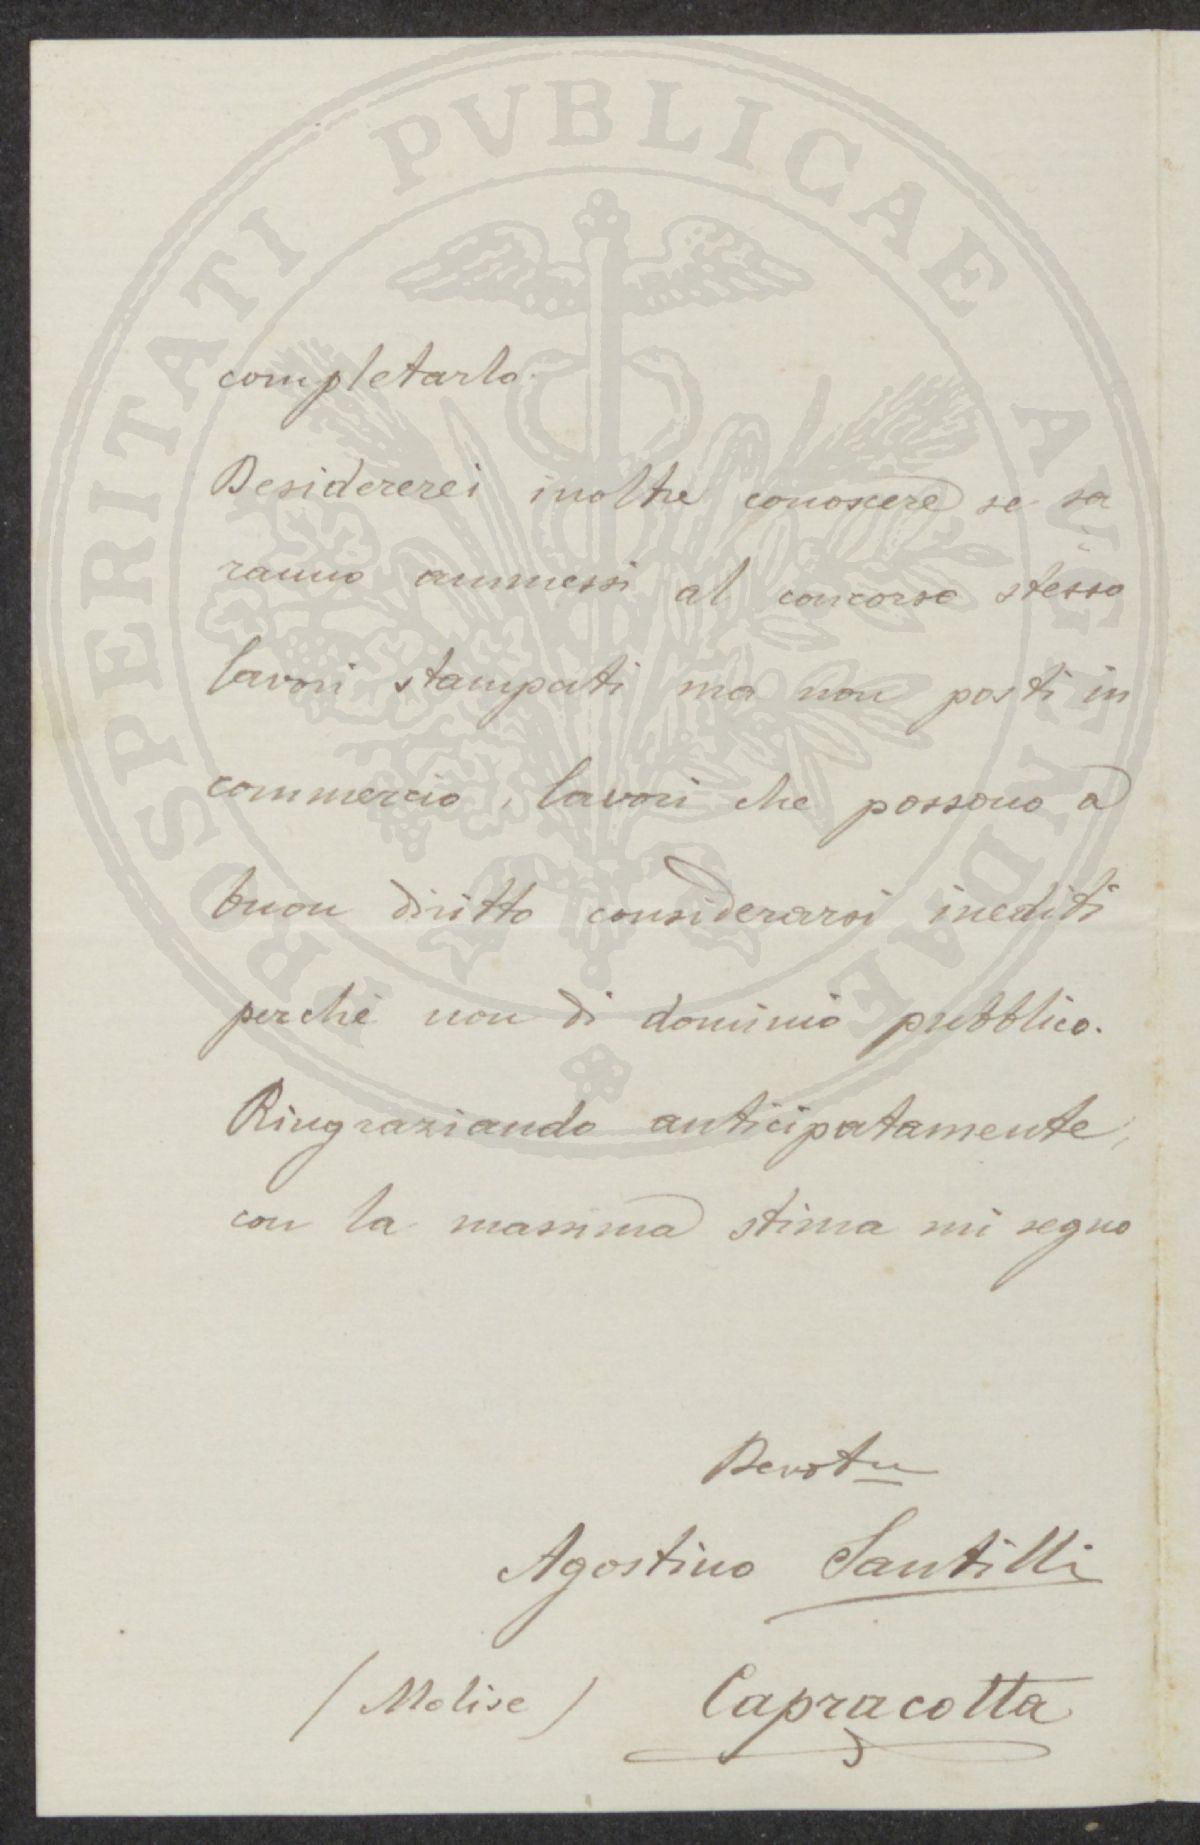 PROSPERITATI PVBLICAE AVGENDAE
completarlo.
Desidererei inoltre conoscere se sa
ranno ammessi al concorso stesso
lavori stampati ma non posti in
commercio, lavori che possono a
buon diritto considerarsi inediti
perchè non di dominio pubblico.
Ringraziando anticipatamente,
con la massima stima mi segno
Agostino Santilli
(Molise) Capracotta